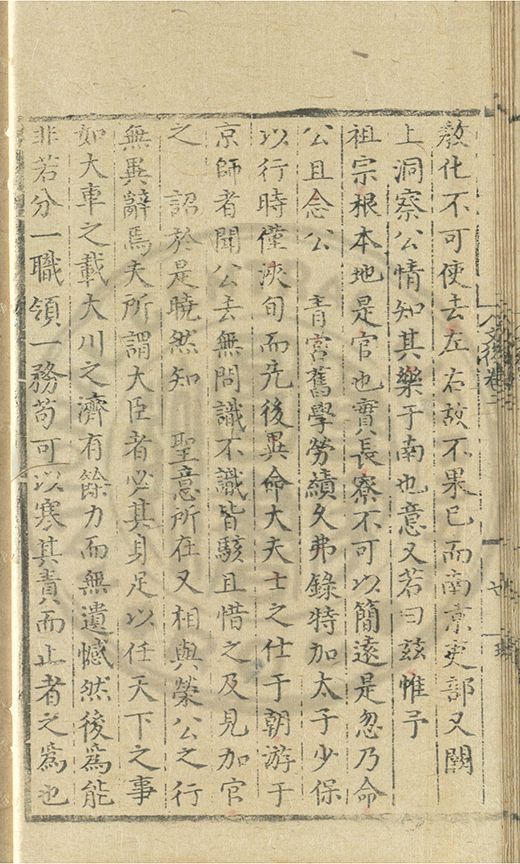 教化不可使去左右故不果已而南京吏部又闕
上洞察公情知其樂于南也意又若曰兹惟予
祖宗根本地是官也實長寮不可以簡遠是忽乃命
公且念公　青宮舊學勞績久弗錄特加太子少保
以行時僅浹旬而先後異命大夫士之仕于朝游于
京師者聞公去無問識不識皆駭且惜之及見加官
之　詔於是曉然知　聖意所在又相與榮公之行
無異辭焉夫所謂大臣者必其身足以任天下之事
如大車之載大川之濟有餘力而無遺憾然後爲能
非若分一職領一務苟可以寒其責而止者之爲也